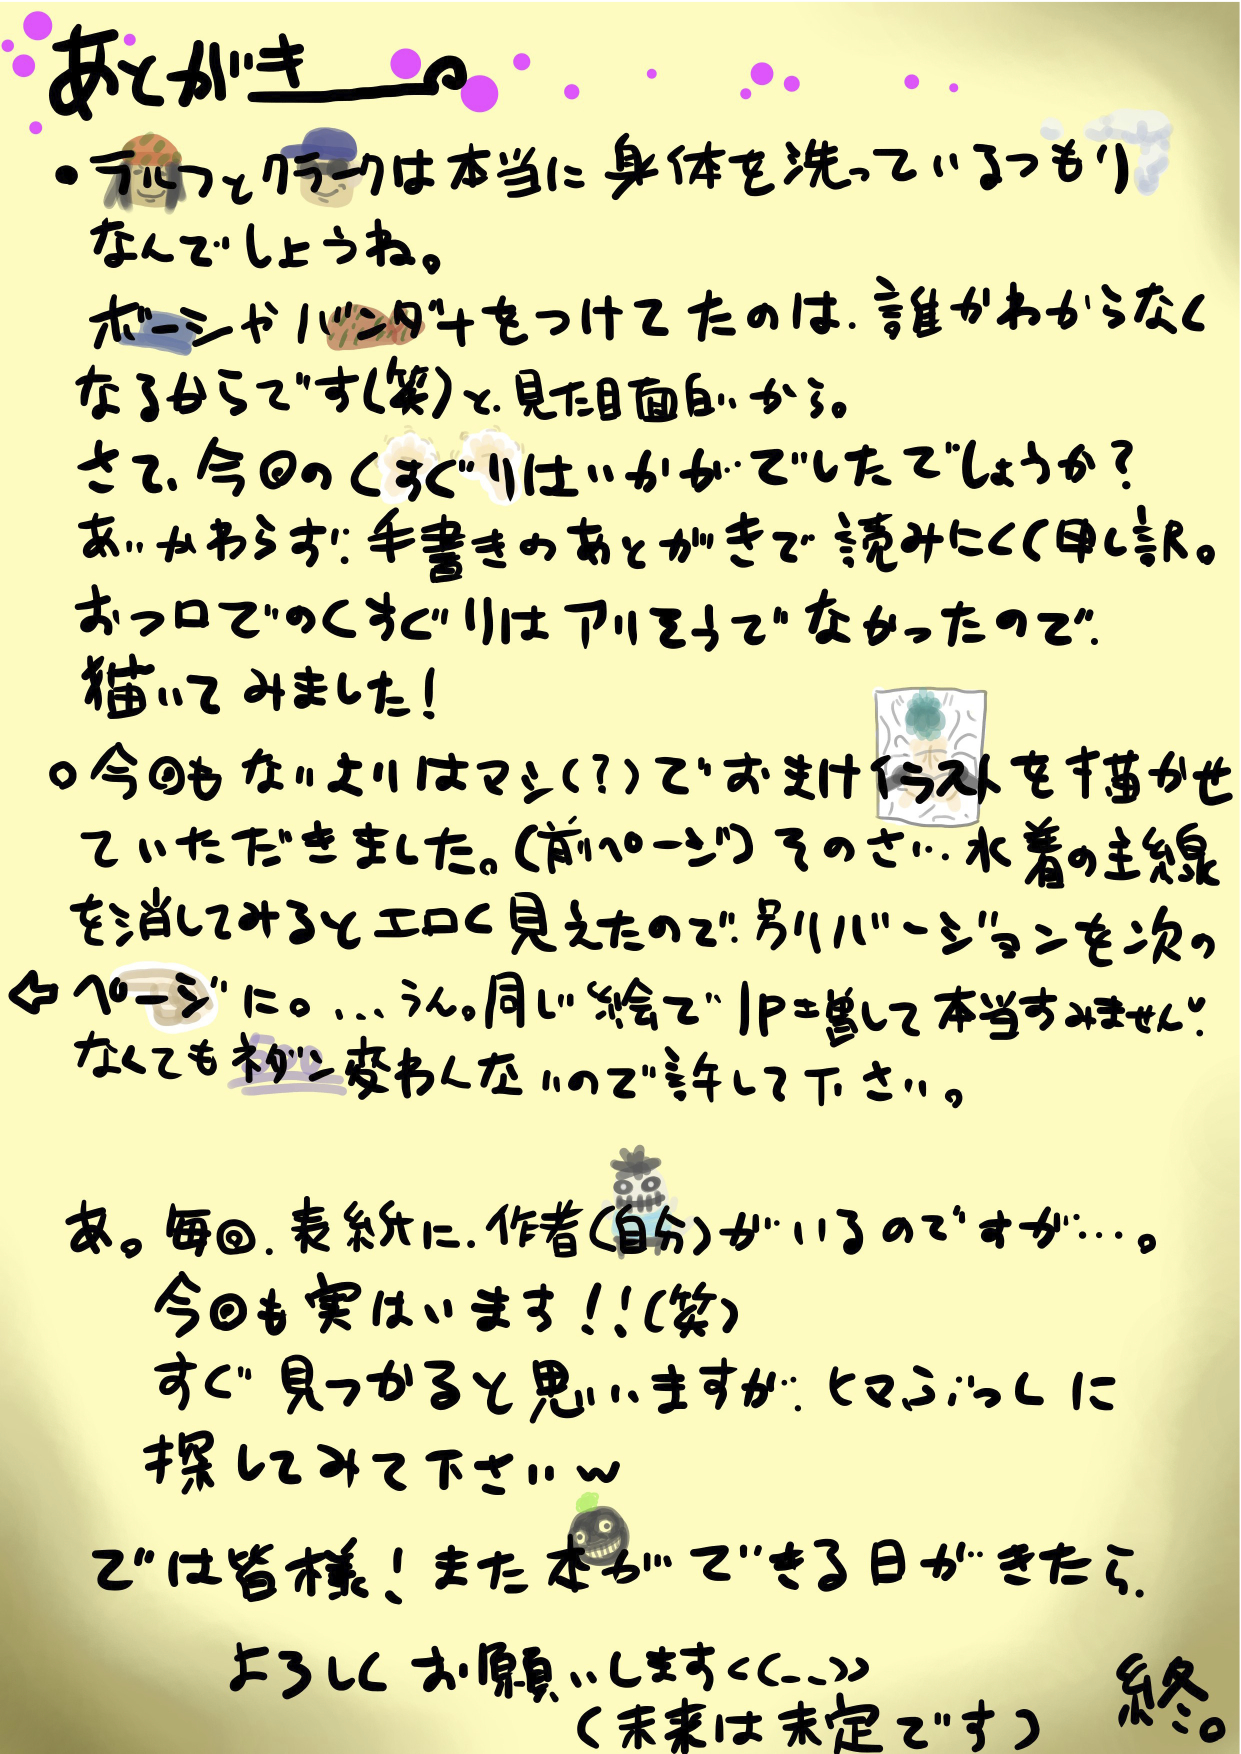 あとがき
・ラルフとクラークは本当に身体を洗っているつもり
なんでしょうね。
ボーシやバンダナをつけてたのは、誰かわからなく
なるからです(笑)と、見た目面白いから。
さて、今回のくすぐりはいかがでしたでしょうか?
あいかわらず、手書きのあとがきで読みにくく申し訳。
お口でのくすぐりはアリそうでなかったので、
猫いてみました!
○今回もないよりはマシ(?)でおまけイラストを描かせ
ていただきました。(前ページ)そのさい、水着の主線
を消してみるとエロく見えたので、別バージョンを次の
⇦ページに。...うん。同じ絵で1P増して本当すみません!
なくてもネダン変わんないので許して下さい。
あ。毎回、表紙に、作者(自分)がいるのですが…。
今回も実はいます!!(笑)
すぐ見つかると思いますが、ヒマぶっしに
探してみて下さいw
では皆様!また本ができる日がきたら、
よろしくお願いします<(_ _)>
(未来は未定です)
終。